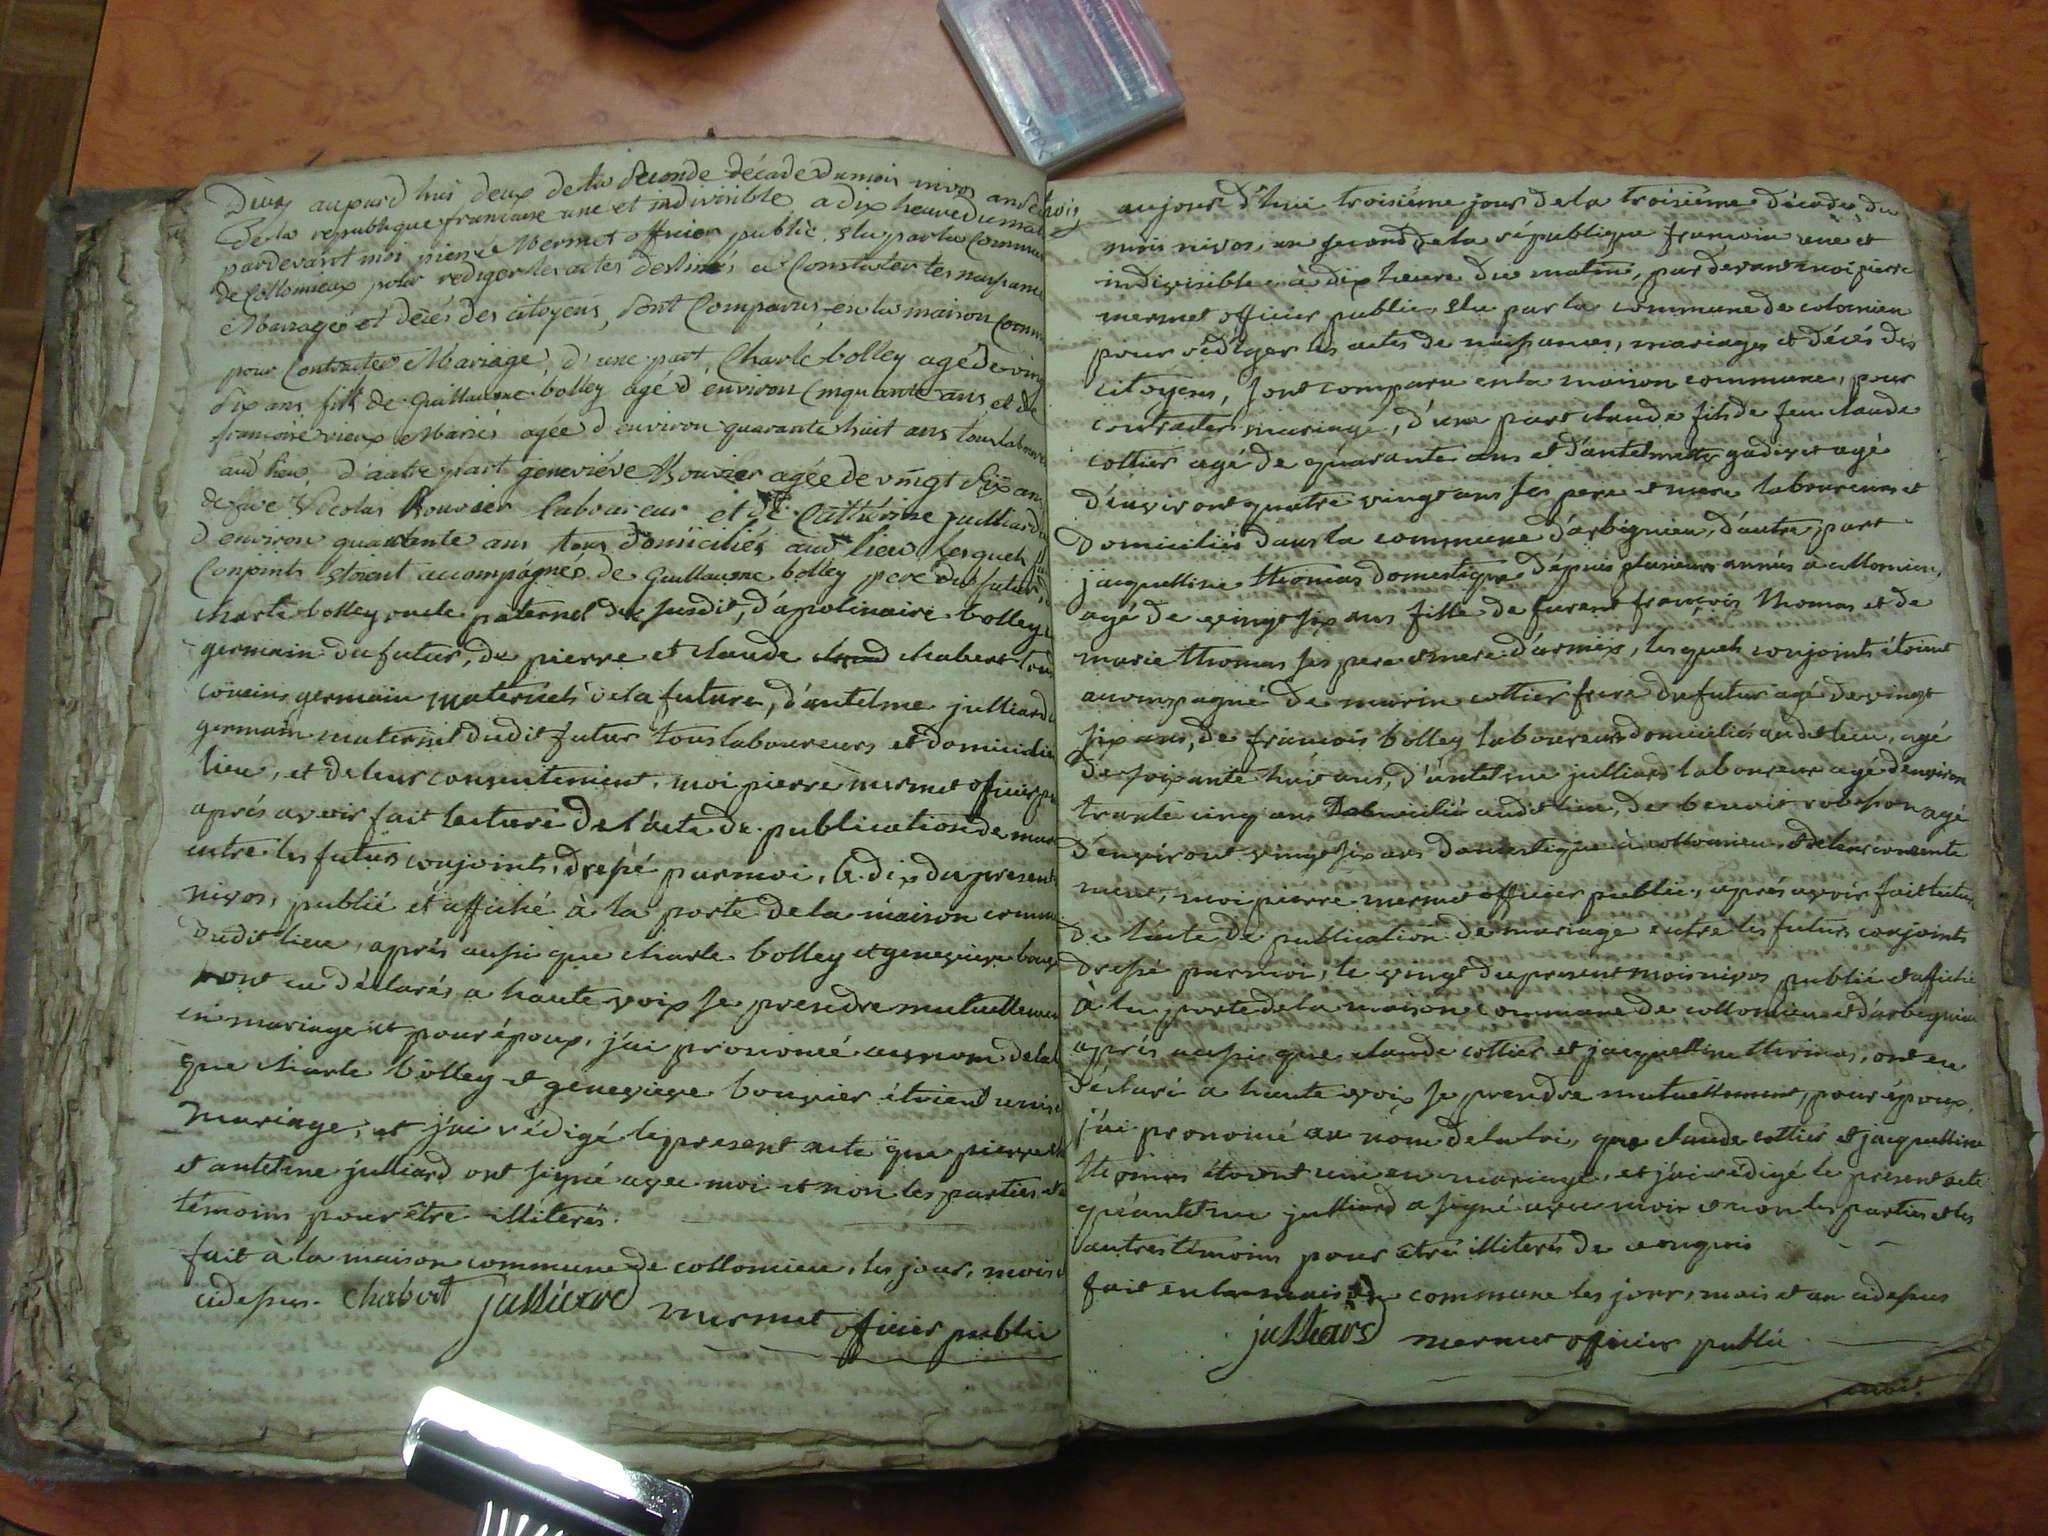 aujourd hui deux de la seconde décade du mois nivos an
de la republique francaise une et indivisible a dix heure du mat
pardevant moi pierre Mermet officier public elu par la Commun
de Collomieux pour rediger les actes destinés a Constater les naissance
Mariages et décés des citoyens, sont Comparus en la maison Comm
pour Contracter Mariage, d'une part, Charle bolley agé de ving
six ans fils de Guillaume bolley agé d environ Cinquante ans et de
francoise vieux Mariés agée d environ quarante huit ans tous laboure
aud lieu, d'autre part geneviéve Bouvier agée de vingt six an
de Nicolas Bouvier laboureur et de Cathérine juilliard
d environ quarante ans tous domiciliés aud lieu lesquels
Conjoints etoient accompagnés de Guillaume bolley pere du futur
charle bolley oncle paternel du susdit, d'apolinaire bolley
germain du futur, de pierre et claude chabert tous
cousins germain maternels de la future, d'antelme julliard
germain maternel dudit futur tous laboureurs et domicilie
lieu, et de leur consentement, moi pierre mermet officier pu
aprés avoir fait lecture de l'acte de publication de mar
entre les futurs conjoints, dressé par moi, le dix du present
nivos, publié et affiché à la porte de la maison commu
dudit lieu, aprés aussi que charle bolley et genevieve bouv
ont eu déclarés a haute voix se prendre mutuellemen
en mariage et pour époux, j'ai prononcé au nom de la l
que charle bolley et genevieve bouvier étoient unis
mariage, et j'ai rédigé le present acte que pierre
et antelme julliard ont signé avec moi et non les parties et
témoins pour être illiterés.
fait à la maison commune de collomieu, les jour, mois
cidessus. Chabert julliard mermet officier public
aujourd'hui troisiéme jour de la troisiéme décade du
mois nivos, an second de la république francoise une et
indivisible à dix heure du matin, pardevant moi pierre
mermet officier public elu par la commune de colomieu
pour rédiger les actes de naissances, mariages et décés des
citoyens, sont comparu en la maison commune, pour
contracter mariage, d'une part claude fils de feu claude
cottier agé de quarante ans et d'antelmette gadivet agé
d'environt quatre vingt ans ses pere et mere laboureurs et
domiciliés dans la commune d'arbignieu, d'autre part
jacquelline thomas domestique depuis plusieurs années a collomieu,
agé de vingt six ans fille de furent françois thomas et de
marie thomas ses pere et mere d'armix, lesquels conjoints étoient
accompagné de marin cottier frere du futur agé de vingt
six ans, de francois bolley laboureurs domiciliés audit lieu, agé
de soixante huit ans, d'antelme julliard laboureur agé d'environ
trante cinq ans domicilié audit lieu, de benoit robesson agé
d'environt vingt six ans domestique à collomieu et de leur consente
ment, moi pierre mermet officier public, aprés avoir fait lectur
de l'acte de publication de mariage entre les futurs conjoints
dressé par moi, le vingt du present mois nivos publié et affiché
à la porte de la maison commune de collomieu et d'arbegnieu
aprés aussi que claude cottier et jacquelline thomas, ont eu
déclaré a haute voix se prendre mutuellement, pour époux,
j'ai prononcé au nom de la loi, que claude cottier et jacquelline
thomas étoient uni en mariage, et j'ai rédigé le present acte
qu'antelme julliard a signé avec moi et non les parties et les
autres témoins pour être illiterés de ce enquis
fait en la maison commune les jour, mois et an cidessus
julliard mermet officier public